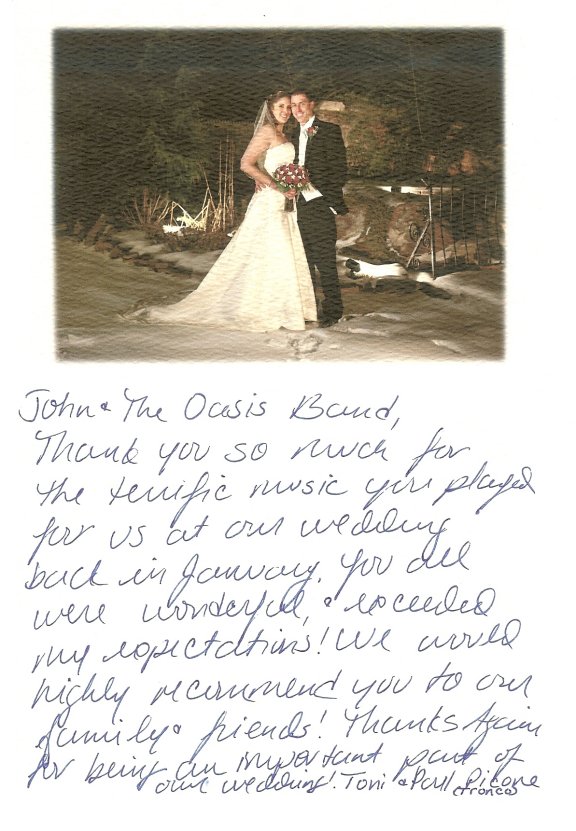 John & The Oasis Band,
Thank you so much for
the terrific music you played
for us at our wedding
back in January. You all
were wonderful, & exceeded
my expectations! We would
highly recommend you to our
family & friends! Thanks Again
for being an important part of
our wedding! Toni & Paul Picone
(Tronca)